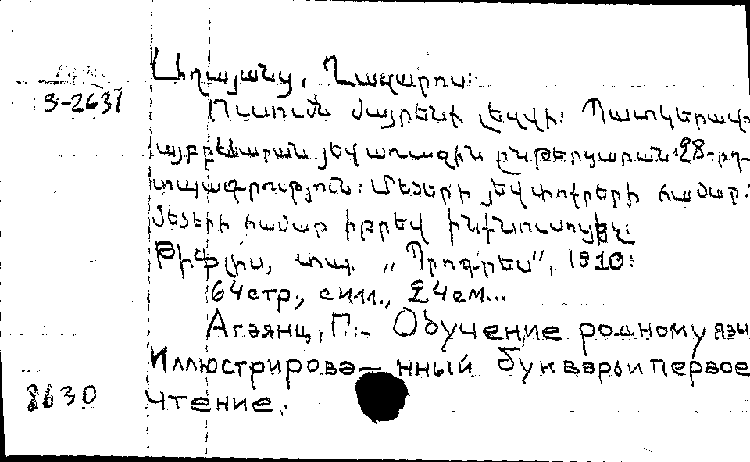 3-2637
Աղայանց, Ղազարոս:
Ուսումն մայրենի լեզվի: Պատկերավ
այբբենարան յեվ առաջին ընթերցարան 28-րդ
տպագրություն: Մեծերի յեվ փոքրերի համար:
Մեծերի համար իբրեվ ինքնուսույց:
Թիֆլիս, տպ. „Պրոգրես", 1910:
64стр., илл., 24см...
Агаянц, П.- Обучение родному язы
Иллюстрирова- нный букварь и первое
8630 чтение.